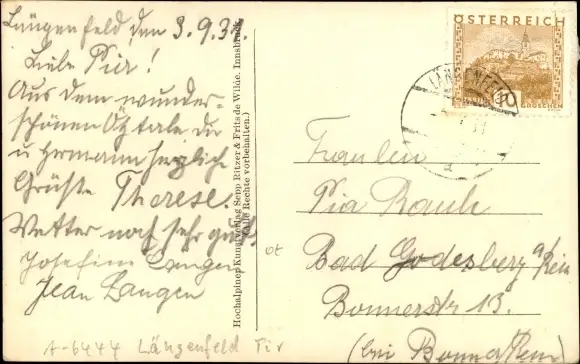 Längenfeld den 3.9.3
Liebe Pia!
Aus dem wunder-
schönen Ötztale dir
u Hermann herzliche
Grüße Therese.
Wetter noch sehr gut!
Josefine Langen
Jean Langen
A-6444 Längenfeld Tir
Hochalpiner Kunstverlag Sepp Ritzer & Frits de Wilde, Innsbruck
(Alle Rechte vorbehalten.)
ÖSTERREICH
10
GROSCHEN
LÄNGENFELD
Fräulein
Pia Rauh
Bad Godesberg a/Rein
Bonnerstr 13.
(bei Bonn a. Rhein)